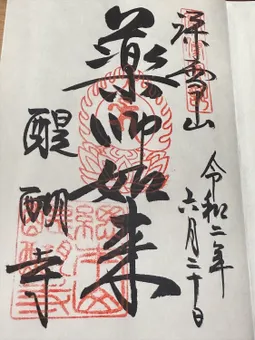 深雪山
令和二年
六月二十日
薬師如来
醍醐寺